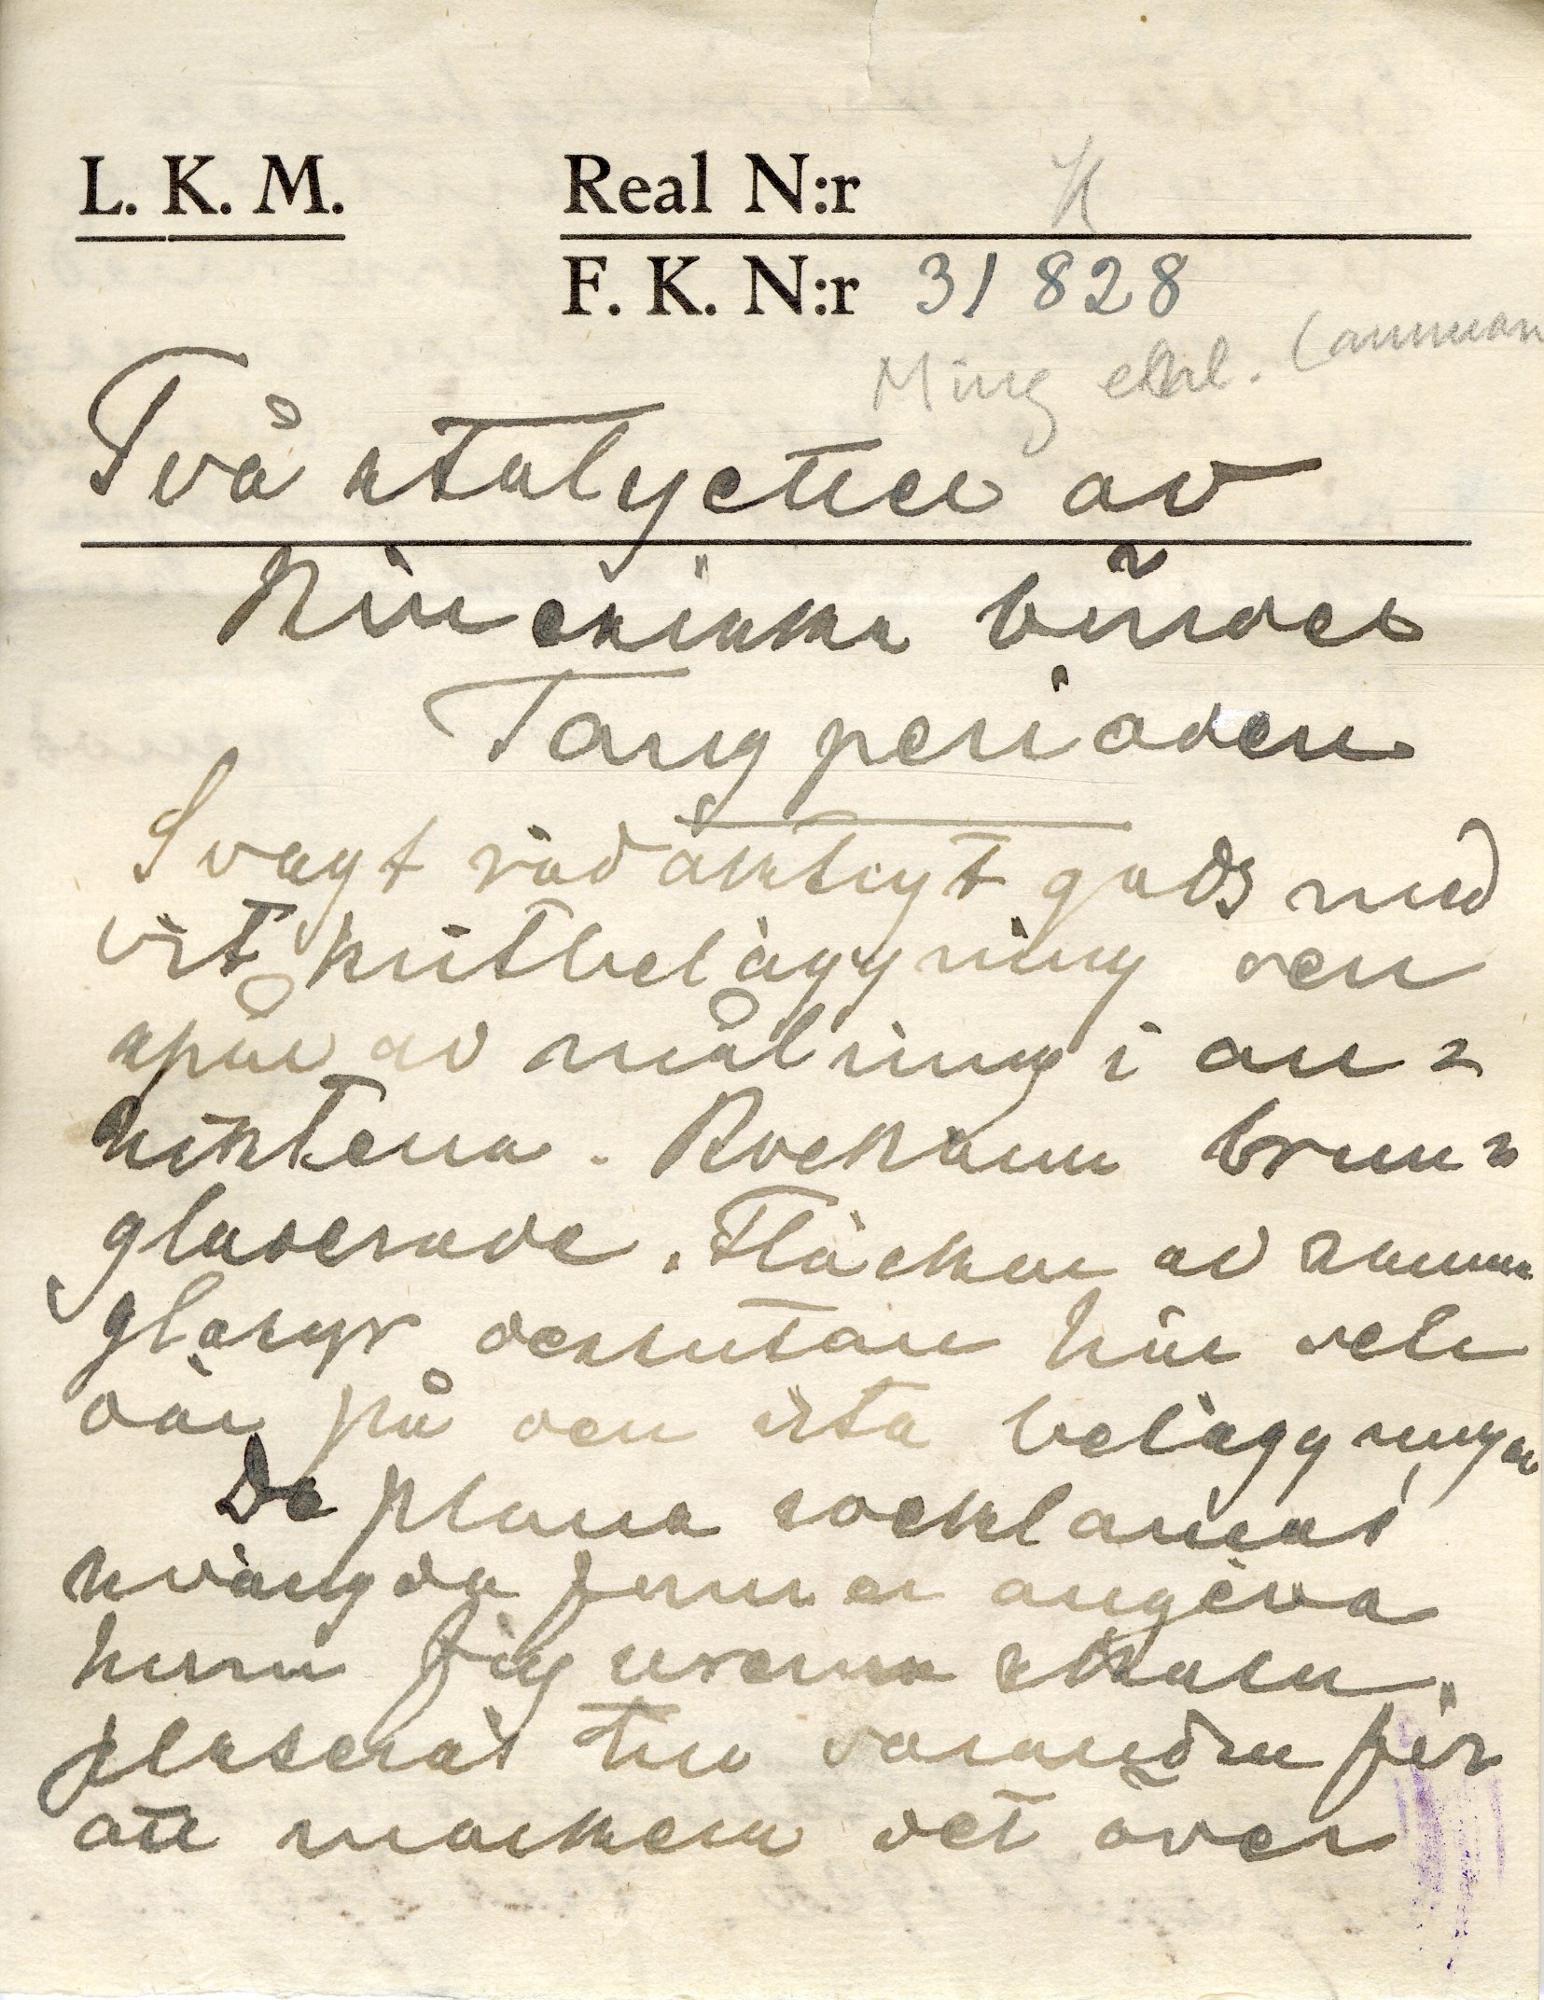 L. K. M. Real N:r K
F. K. N:r 31 828
Ming
Två statyetter av
kinesiska bönder
Tangperioden
Svagt rödaktigt gods med
vit kritbeläggning och
spår av målning i an=
siktena. Rockarna brun=
glaserade. Fläckar av samma
glasyr dessutan här och
där på den vita beläggningen
De plana socklarnas
svängda former angiva
huru figurerna skola
placeras till varandra för
att markera det över